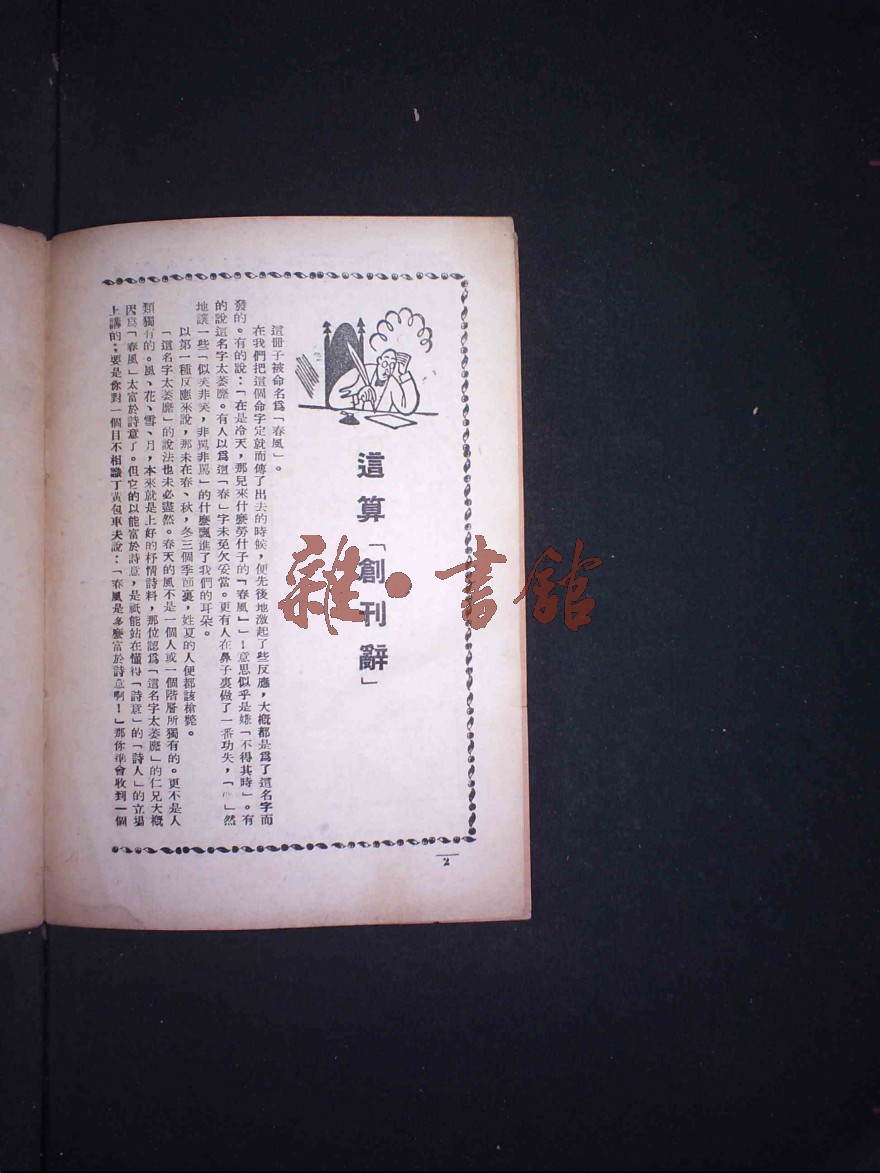 這算「創刊辭」
這冊子被命名爲「春風」。
在我們把這個命字定就而傳了出去的時候，便先後地激起了些反應，大槪都是爲了這名字而
發的。有的說：「在是冷天，那兒來什麼勞什子的「春風」」！意思似乎是嫌「不得其時」。有
的說這名字太萎靡。有人以爲這「春」字未免欠妥當。更有人在鼻子裏做了一番功夫，「」然
地讓一些「似笑非笑，非罵非罵」的什麼飄進了我們的耳朵。
以第一種反應來說，那末在春、秋，冬三個季節裏，姓夏的人便都該槍斃。
「這名字太萎靡」的說法也未必盡然。春天的風不是一個人或一個階層所獨有的。更不是人
類獨有的。風、花、雪、月，本來就是上好的抒情詩料，那位認爲「這名字太萎靡」的仁兄大槪
因爲「春風」太富於詩意了。但它的以能富於詩意，是祇能站在懂得「詩意」的「詩人」的立場
上講的；要是你對一個目不相識丁黃包車夫說：「春風是多麼富於詩意啊！」那你準會收到一個
2
雜·書館